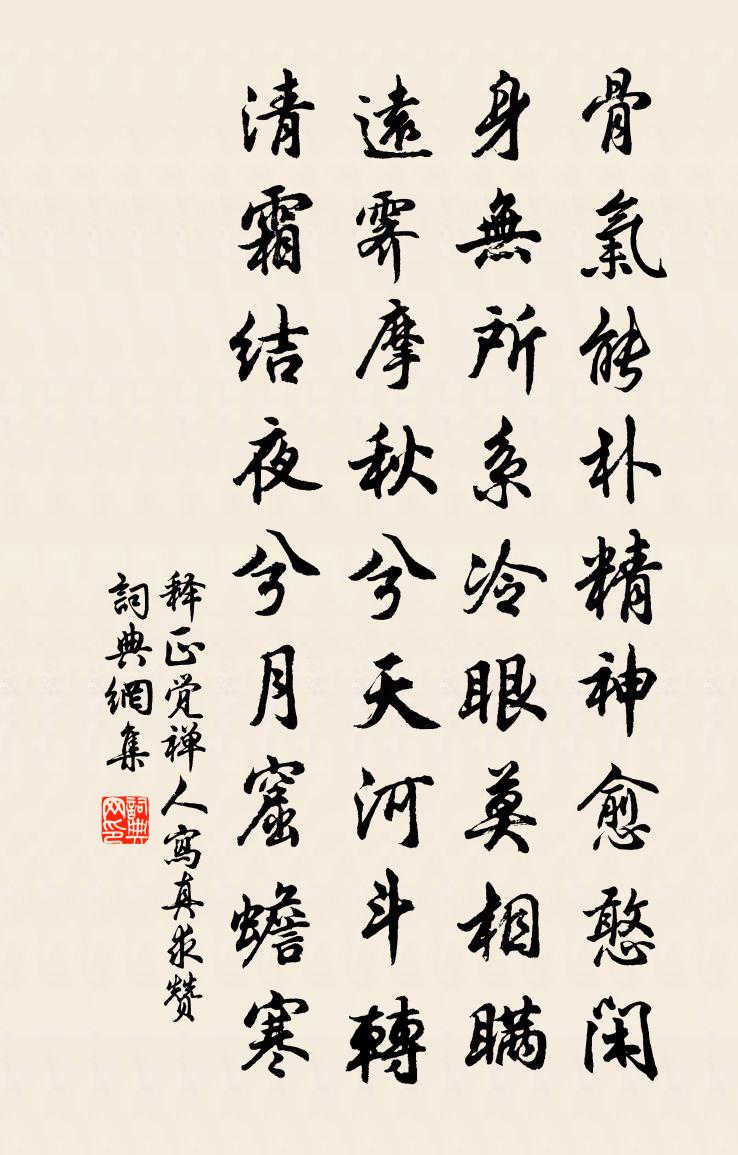 骨氣能朴精神愈憨闲
身無所系冷眼莫相瞞
遠霽摩秋兮天河斗轉
清霜结夜兮月窟蟾寒
释正觉禅人寫真求赞
詞典網集
詞典网印